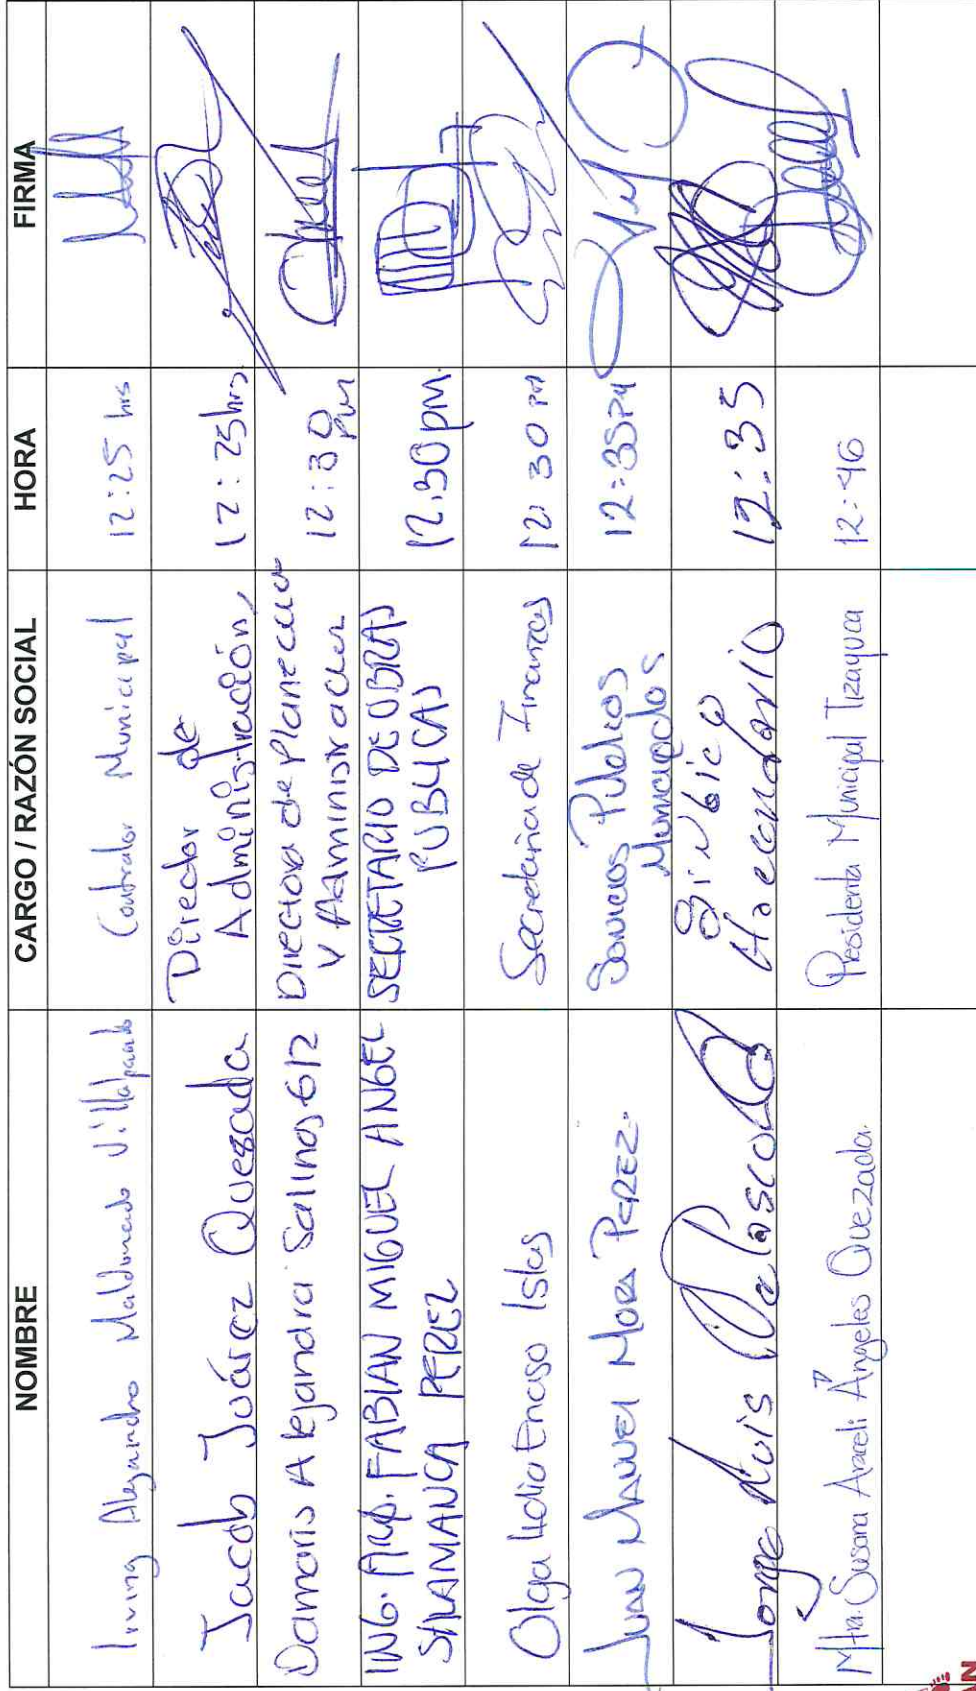 NOMBRE CARGO / RAZÓN SOCIAL HORA FIRMA
Irving Alejandro Maldonado Villalpando Contralor Municipal 12:25 hrs
Jacob Juárez Quezada Director de
Administración 12:25hrs
Damaris Alejandra Salinas Directora de Planeacion
y Administracion 12:30
pm
ING. ARQ. FABIAN MIGUEL ANGEL SECRETARIO DE OBRAS
SALAMANCA PEREZ PUBLICAS 12:30pm.
Olga Lidia Enciso Islas Secretaria de Finanzas 12:30 pm
JUAN MANUEL MORA PEREZ. Servicios Publicos
Municipales 12:35PM
Jorge Luis Síndico
Hacendario 12:35
Mtra. Susana Araceli Ángeles Quezada. Presidenta Municipal Tizayuca 12:46